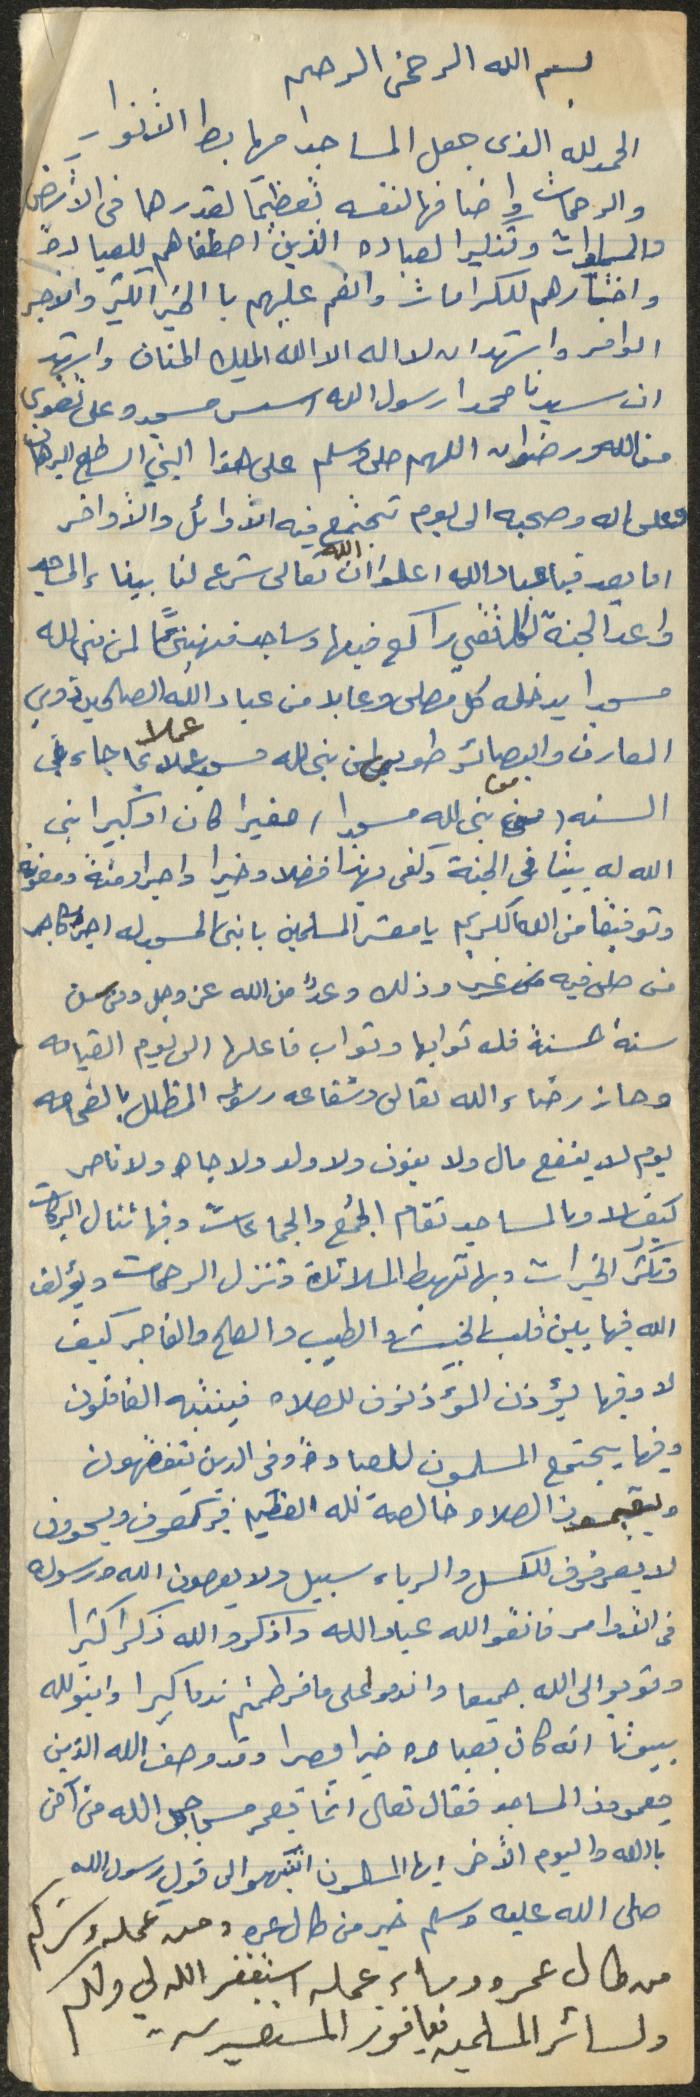 بسم الله الرحمن الرحيم
الحمد لله الذى جعل المساجدا مهابط الأنوار
والرحمات وإضافها لنفسه تعظيمًا لقدرها فى الأرض
والسموات وتذكيرا لعباده الذين اصطفاهم للعبادة
واختارهم للكرامات وانعم عليهم بالخير الكثير والاجر
الوافر واشهد ان لا اله الا الله المليك المنان واشهد
ان سيدنا محمدا رسول الله اسس مسجده على تقوى
من الله ورضوان اللهم صلى وسلم على هذا النبي الساطع البرهان
وعلى اله وصحبه الى يوم تجتمع فيه الأوائل والأواخر
اما بعد فيا عباد الله اعلموا ان الله تعالى شرع لنا بيناء المساجد
واعد الجنة لكل تقي راكع فيها وساجد فهنيئًا لمن بنى لله
مسجدا يدخله كل مصلى وعابد من عباد الله الصالحين ذوي
المعارف والبصائر طوبى لمن بنى لله مسجد عملا بما جاء فى
السنه (من بنى لله مسجدا) صغيرا كان او كبيرا بنى
الله له بيتًا فى الجنة وكفى بهذا فضلا وخيرا واجرا ومنة ومغفرة
وتوفيقًا من الله الكريم يا معشر المسلمين بانى المسجد له اجرا كاجر
من صلى فيه من غير وذلك وعدًا من الله عز وجل ومن سن
سنة حسنة فله ثوابها وثواب فاعلها الى يوم القيامه
وحاز رضاء الله تعالى وشفاعه رسوله المظلل بالغمامه
يوم لا ينفع مال ولا بنون ولا ولد ولا جاه ولا ناصر
كيف لا وبالمساجد تقام الجُمَع والجماعات وفيها تنال البركات
وتكثر الخيرات وبها تهبط الملائكة وتنزل الرحمات ويؤلف
الله فيها بين قلب الخبيث والطيب والصالح والفاجر كيف
لا وفيها يؤذن المؤذنون للصلاه فينتبه الغافلون
وفيها يجتمع المسلمون للعبادة وفى الدين يتفقهون
ويقيمون الصلاه خالصة لله العظيم فيركعون ويسجدون
لا يعرفون للكسل والرياء سبيل ولا يعصون الله ورسوله
فى الأوامر فاتقو الله عباد الله واذكرو الله ذكرًا كثيرا
وتوبو الى الله جميعا واندموا على ما فرطتم ندما كبيرا وابنو لله
بيوتًا انه كان بعباده خبيرا بصيرا وقد وصف الله الذين
يعمرون المساجد فقال تعالى انما يعمر مساجد الله من آمن
بالله واليوم الأخر ايها المسلمون انتبهوا الى قول رسول الله
صلى الله عليه وسلم خير من طال عمره وحسن عمله وشركم
من طال عمره وساء عمله استغفر الله لي ولكم
ولسائر المسلمين فيا فوز المستغفرين